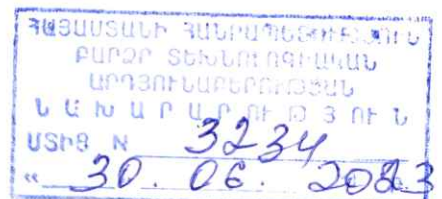 ՀԱՅԱՍՏԱՆԻ ՀԱՆՐԱՊԵՏՈՒԹՅՈՒՆ
ԲԱՐՁՐ ՏԵԽՆՈԼՈԳԻԱԿԱՆ
ԱՐԴՅՈՒՆԱԲԵՐՈՒԹՅԱՆ
ՆԱԽԱՐԱՐՈՒԹՅՈՒՆ
ՄՏԻՑ N 3234
« 30. 06. 2023